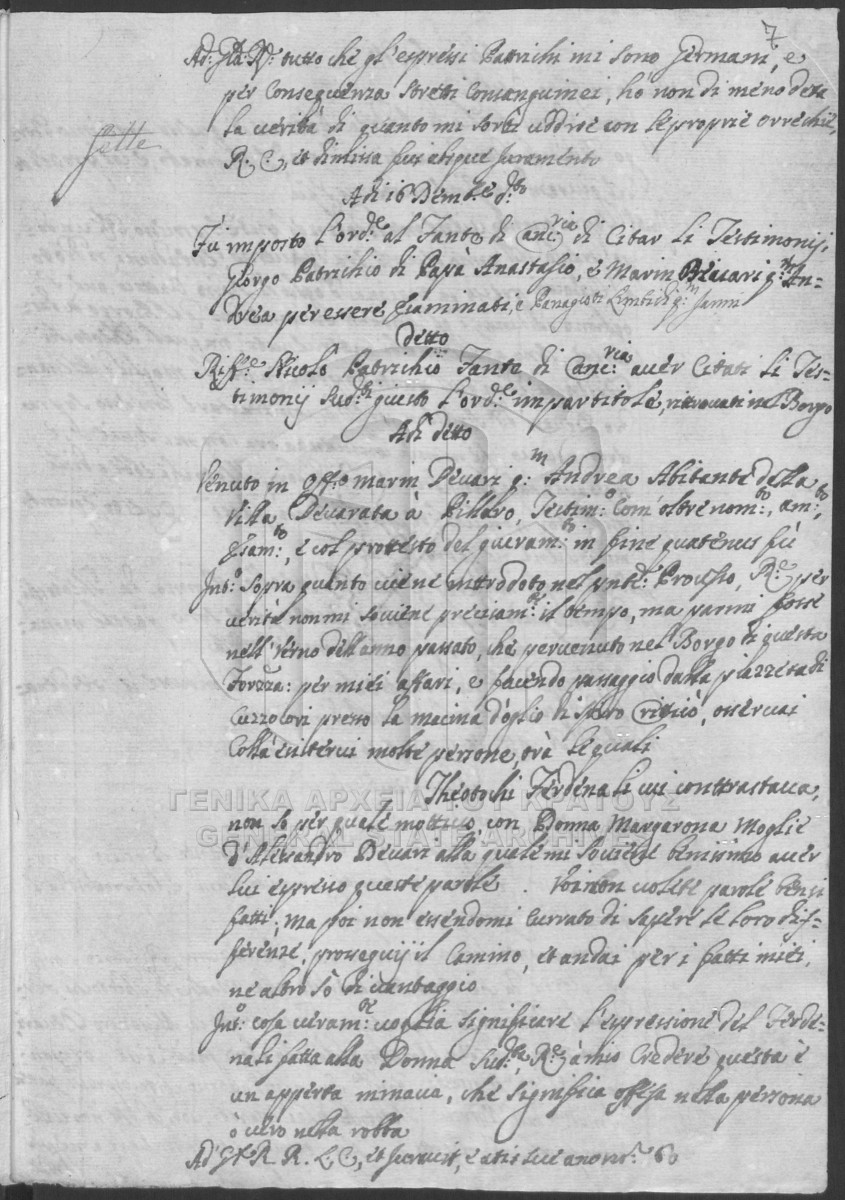 7
Ad: Gla: Rx: tutto che gl'espressi Patrichi mi sono Germani, e
per Consequenza stretti Consanguinei, hò non di meno detta
la verità di quanto mi sortì uddire con le proprie orrechie,
Sette
R. C., et dimissa fuit absque Juramento
Adi 16 Dêmbre d:to
Fù imposto l'ord:e al Fante di Canc:ria di Citar li Testimonij,
Giorgo Patrichio di Papà Anastasio, e Marin Devari q:m An-
drea per essere essaminati, e Panagioti q:m Janni
detto
Riff:e Nicolo Patrichij Fante di Canc:ria aver Citati li Tes-
timonij Sud:ti giusto l'ord:e impartitole, ritrovati nel Borgo
Adi detto
Venuto in Off:o Marin Devari q:m Andrea Abitante della
Villa Devarata à Pillaro, Testim:o Com'oltre nom:to, am:to,
Esam:to, e col prottesto del giuram:to in fine quatenus fù
Int:o sopra quanto viene introdoto nel pnte: Processo, R:e per
verità non mi soviene precisam:te il tempo, ma parmi fosse
nell'verno dell'anno passato, che pervenuto nel Borgo di questa
Forzza: per miei affari, e facendo passaggio dalla piazzeta di
Cuzzolori presso la macina d'oglio di Crissiò, osservai
Collà esistervi molte persone, trà le quali
Theotochi Ferdenali cui conttrastava,
non sò per quale mottivo, con Donna Margarona Moglie
d'Alessandro Devari alla quale mi soviene benissimo aver
lui espresso queste parole . Voi non volete parole bensi
fatti; Ma poi non essendomi currato di sapere le loro dif-
ferenze, proseguij il Camino, et andai per i fatti miei,
ne altro sò di vantaggio
Int:o cosa veram:te voglia significare l'espressione del Ferde-
nali fatta alla Donna Sud:ta, R:e à mio Credere questa è
un apperta minacia, che significa offesa nella persona
o vero nella robba
Ad Gla R R. L. C., et Juravit, e
ΓΕΝΙΚΑ ΑΡΧΕΙΑ ΤΟΥ ΚΡΑΤΟΥΣ
GENERAL STATE ARCHIVES